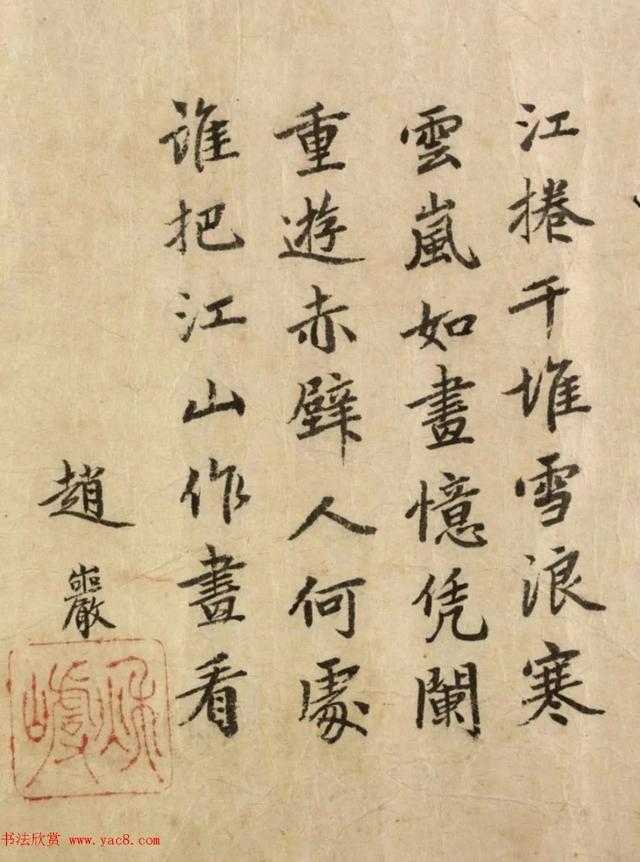 江捲千堆雪浪寒
雲嵐如畫憶凭闌
重遊赤壁人何處
誰把江山作畫看
趙巖
书法欣赏 www.yac8.com